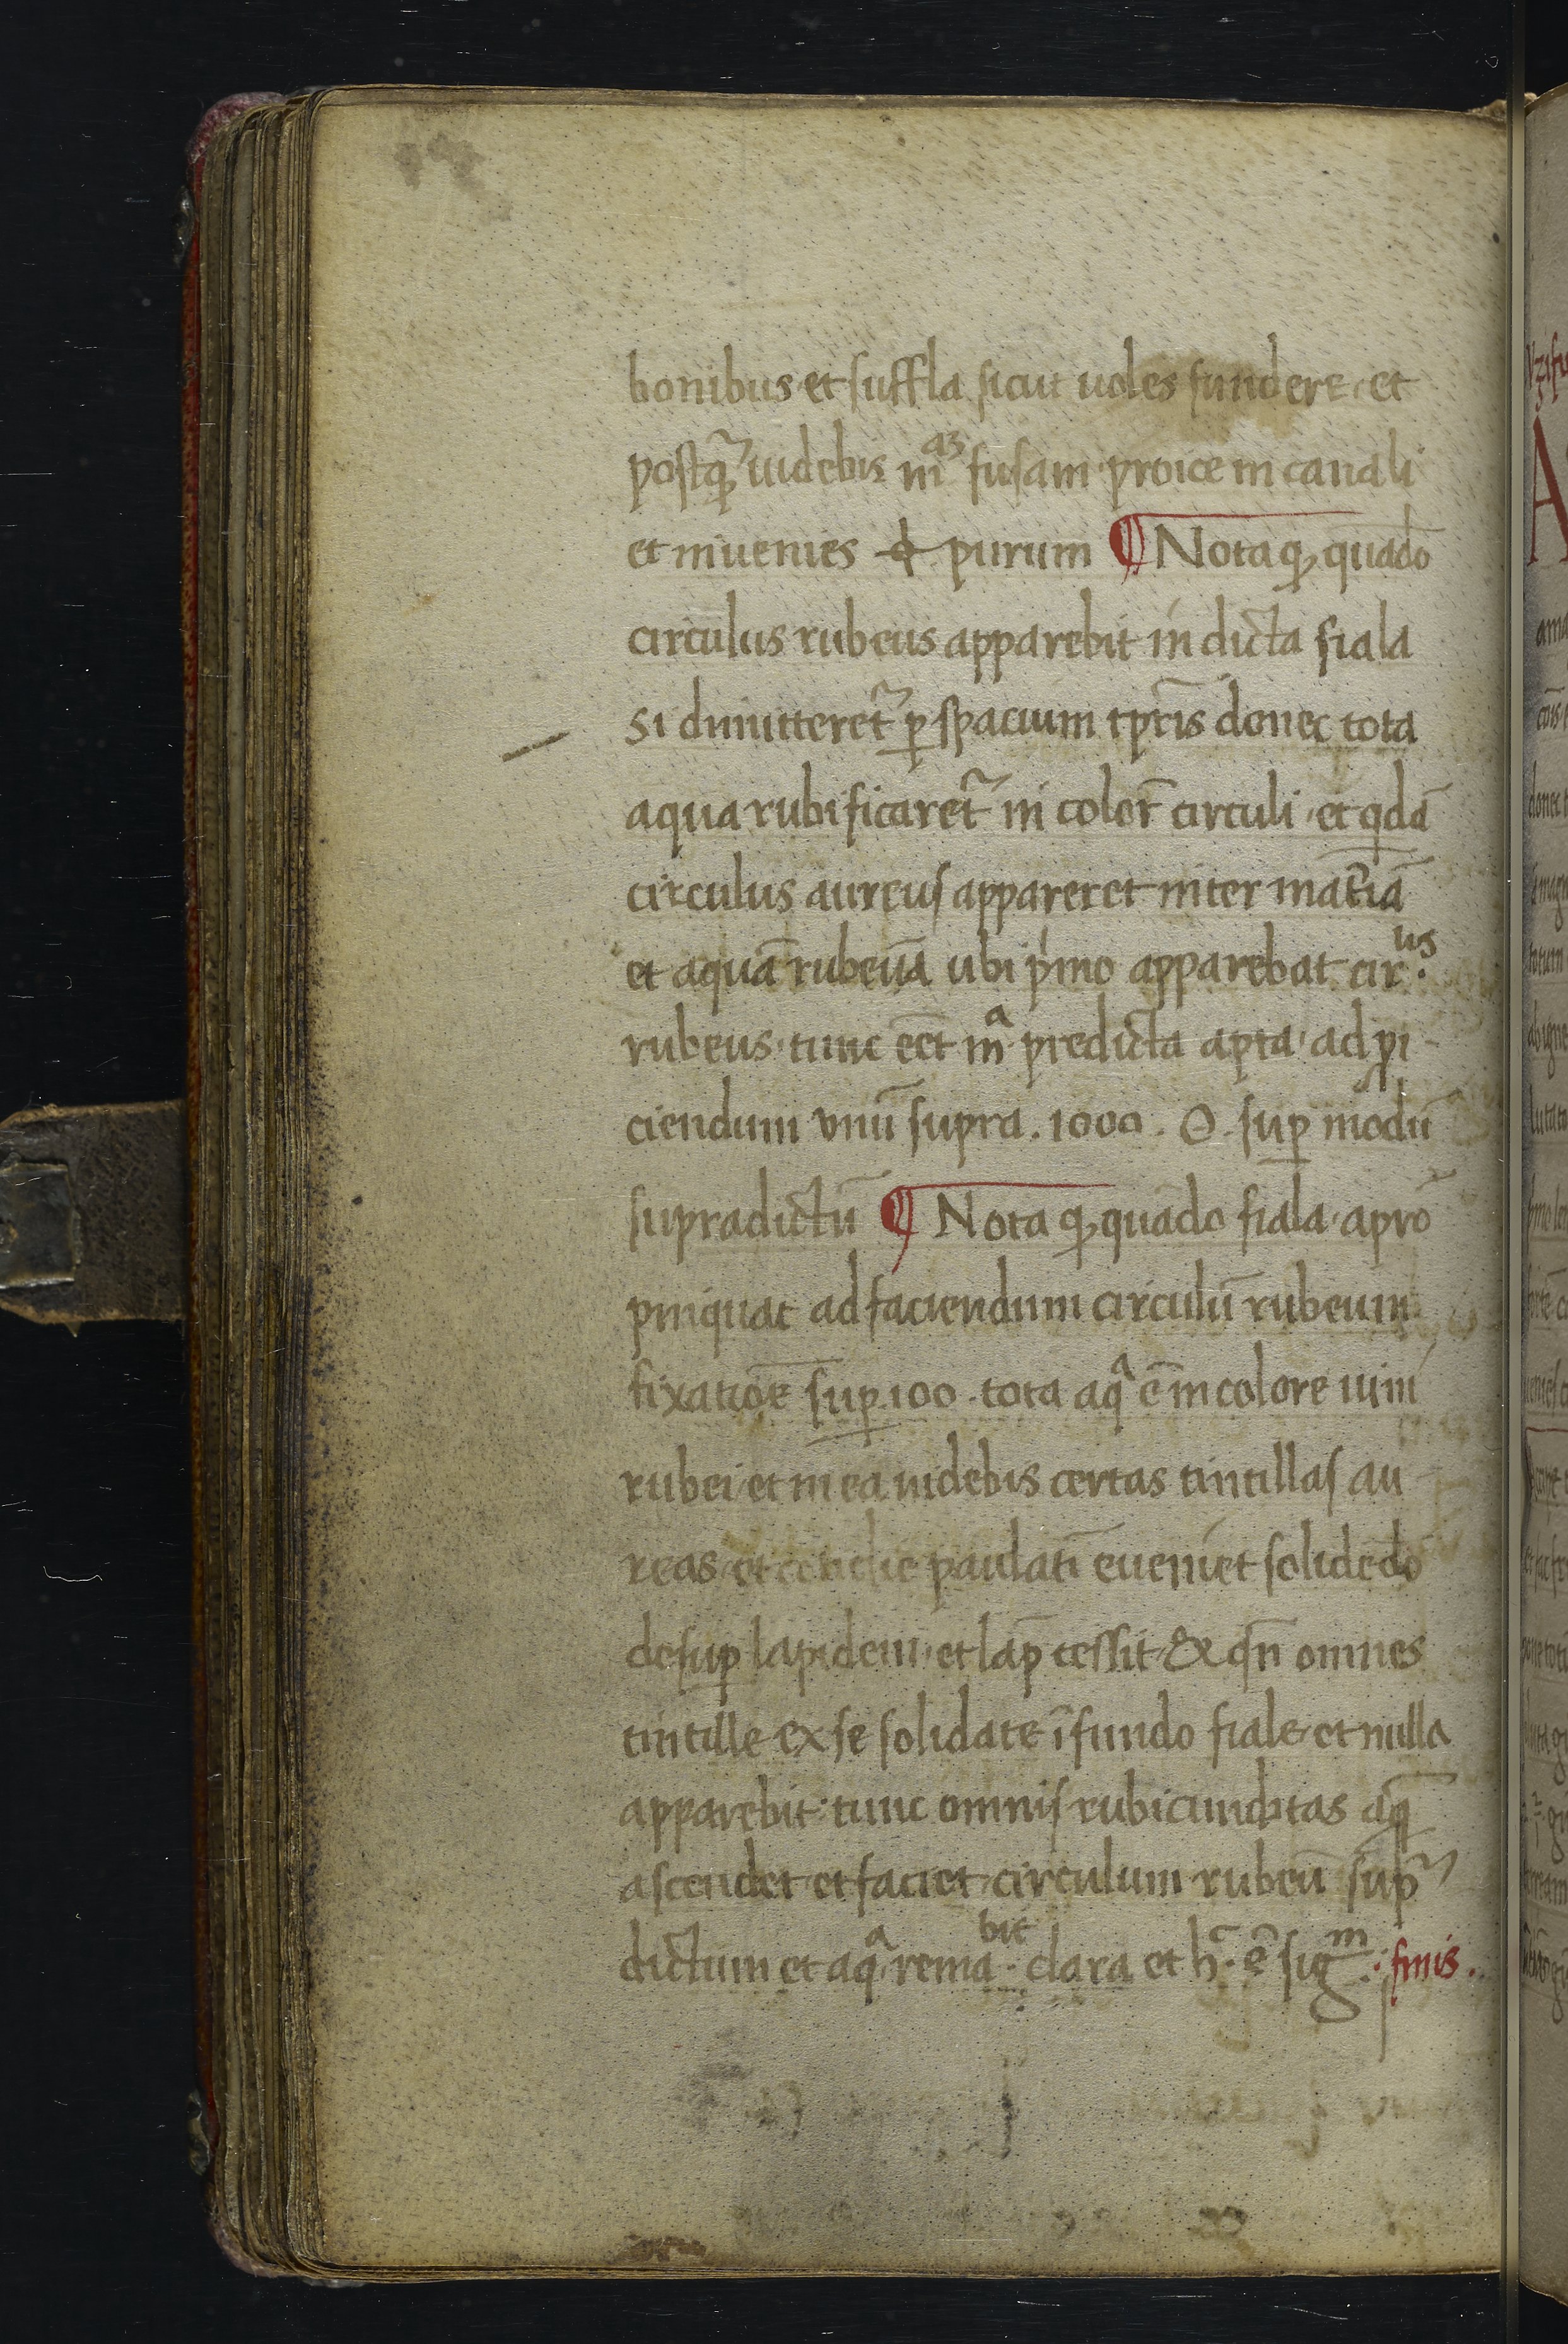 bonibus et suffla sicut uoles fundere et
postq̃ uidebis m̃ aȝ fusam proice in canali
et inuenies purum ¶ Nota qȝ quãdo
circulus rubeus apparebit in dicta fiala
si dimitteret̃ ꝑ spacium tp̃ris donec tota
aqua rubificaret̃ in colorẽ circuli et qdã
circulus aureus appareret inter mãtiã
et aquã rubeuã ubi p̃imo apparebat cir.us
rubeus tunc eẽt mª predicta apta ad ꝓi-
ciendum vnũ supra .1000. ʘ. suꝑ modũ
supradictũ ¶ Nota qȝ quãdo fiala apro
pinquat ad faciendum circulũ rubeum
fixatiõe suꝑ .100. tota aqª ẽ in colore uini
rubei et in ea uidebis certas tintillas au-
reas et paulatĩ eueniet solidẽdo
desuꝑ lapidem et lãp cessit & qñ omnes
tintille exse solidate ĩ fundo fiale et nulla
apparebit tunc omnis rubicunditas aq̃
ascendet et faciet circulum rubeũ sup̃
dictum et aqª remaᵇⁱᵗ clara et h̃. ẽ sigᵐ: finis.